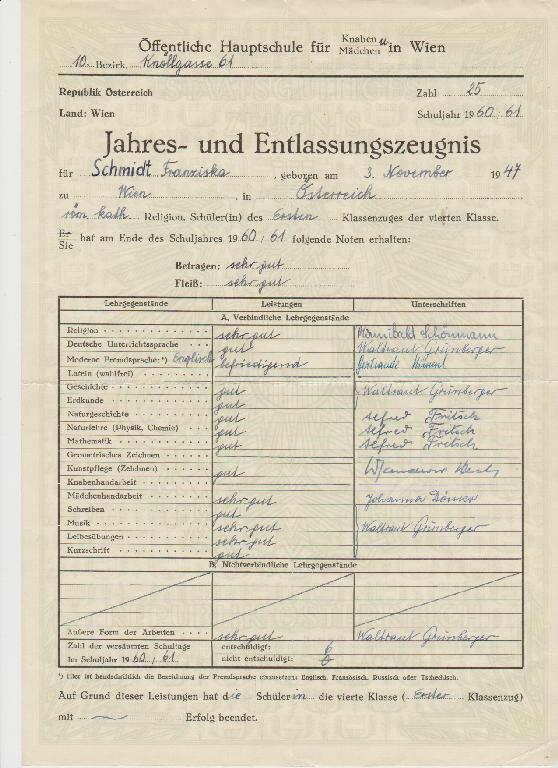 Öffentliche Hauptschule für Knaben u Mädchen in Wien
10. Bezirk, Knöllgasse 61
Republik Österreich Zahl 25
Land: Wien Schuljahr 1960/61
Jahres- und Entlassungszeugnis
für Schmidt Franziska, geboren am 3. November 1947
zu Wien, in Österreich
röm. kath. Religion, Schüler(in) des Ersten Klassenzuges der vierten Klasse.
Er
Sie hat am Ende des Schuljahres 1960/61 folgende Noten erhalten:
Betragen: sehr gut
Fleiß: sehr gut
Lehrgegenstände Leistungen Unterschriften
A. Verbindliche Lehrgegenstände
Religion sehr gut
Deutsche Unterrichtssprache gut Waltraut Grünberger
Moderne Fremdsprache:*) Englisch befriedigend Gertraude
Latein (wahlfrei)
Geschichte gut Waltraut Grünberger
Erdkunde gut
Naturgeschichte gut Alfred Fritsch
Naturlehre (Physik, Chemie) gut Alfred Fritsch
Mathematik gut Alfred Fritsch
Geometrisches Zeichnen
Kunstpflege (Zeichnen) gut
Knabenhandarbeit
Mädchenhandarbeit sehr gut Johanna
Schreiben gut
Musik sehr gut Waltraut Grünberger
Leibesübungen sehr gut
Kurzschrift gut
B. Nichtverbindliche Lehrgegenstände
Äußere Form der Arbeiten sehr gut Waltraut Grünberger
Zahl der versäumten Schultage entschuldigt: 6
im Schuljahr 1960/61 nicht entschuldigt: 0
*) Hier ist handschriftlich die Bezeichnung der Fremdsprache einzusetzen: Englisch, Französisch, Russisch oder Tschechisch.
Auf Grund dieser Leistungen hat die Schülerin die vierte Klasse (Erster Klassenzug)
mit Erfolg beendet.